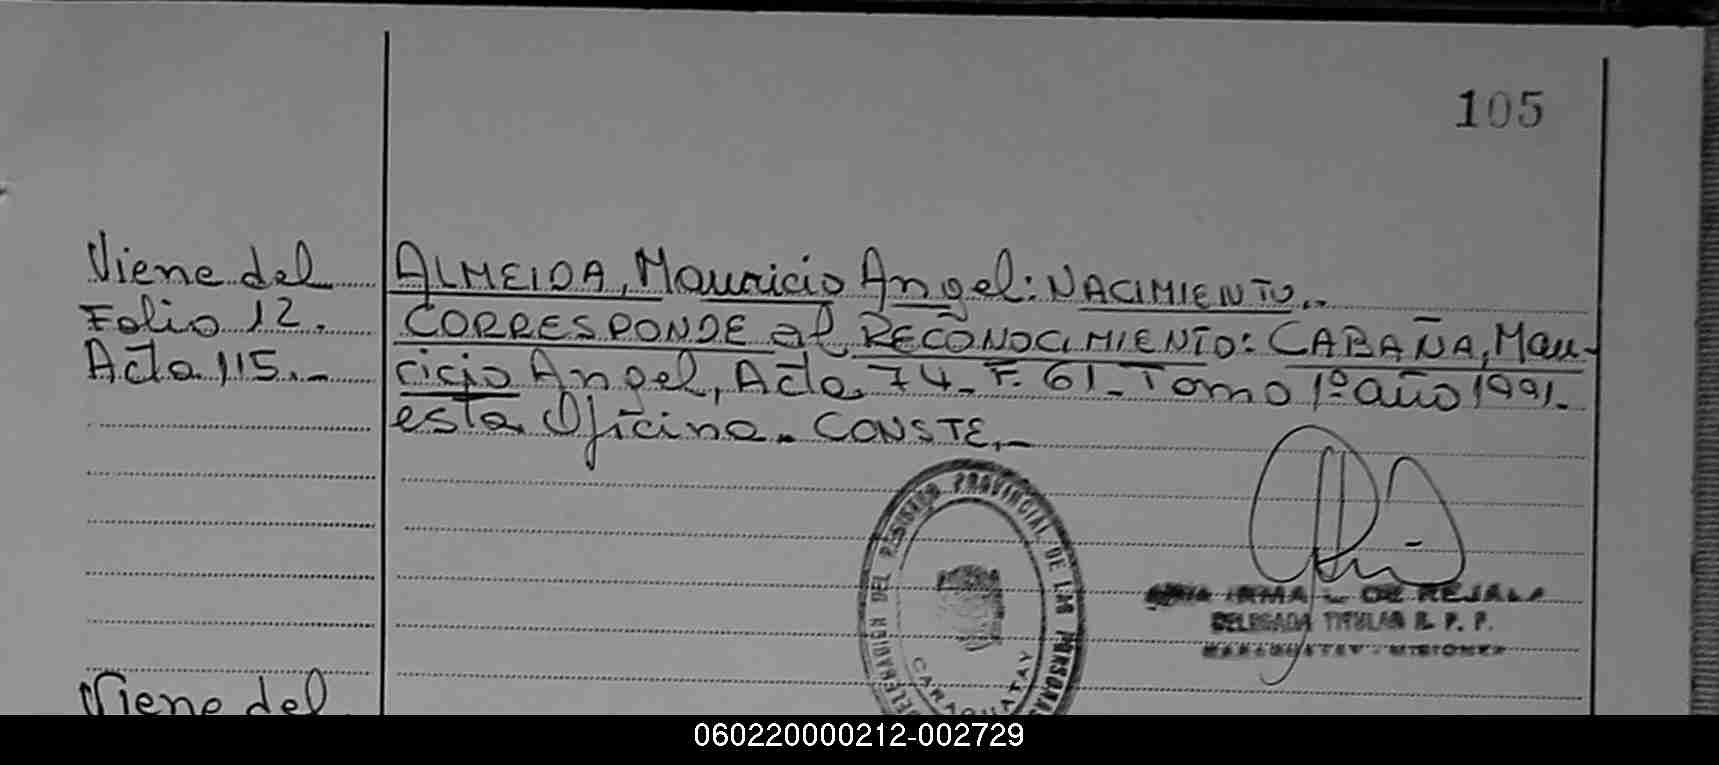 105
Viene del
Folio 12.
Acta 115.-
ALMEIDA, Mauricio Angel: NACIMIENTO..
CORRESPONDE al RECONOCIMIENTO: CABAÑA, Mau-
ricio Angel, Acta 74- F. 61- Tomo 1º año 1991.
esta Oficina. CONSTE.-
DELEGACION DEL REGISTRO PROVINCIAL DE LAS PERSONAS
CARAGUATAY
IRMA L. DE REJALA
DELEGADA TITULAR R. P. P.
CARAGUATAY - MISIONES
Viene del
060220000212-002729